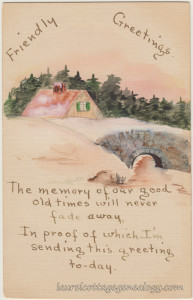 Friendly Greetings.
The memory of our good
old times will never
fade away,
In proof of which I'm
sending this greeting
to-day.
laurelcottagegenealogy.com